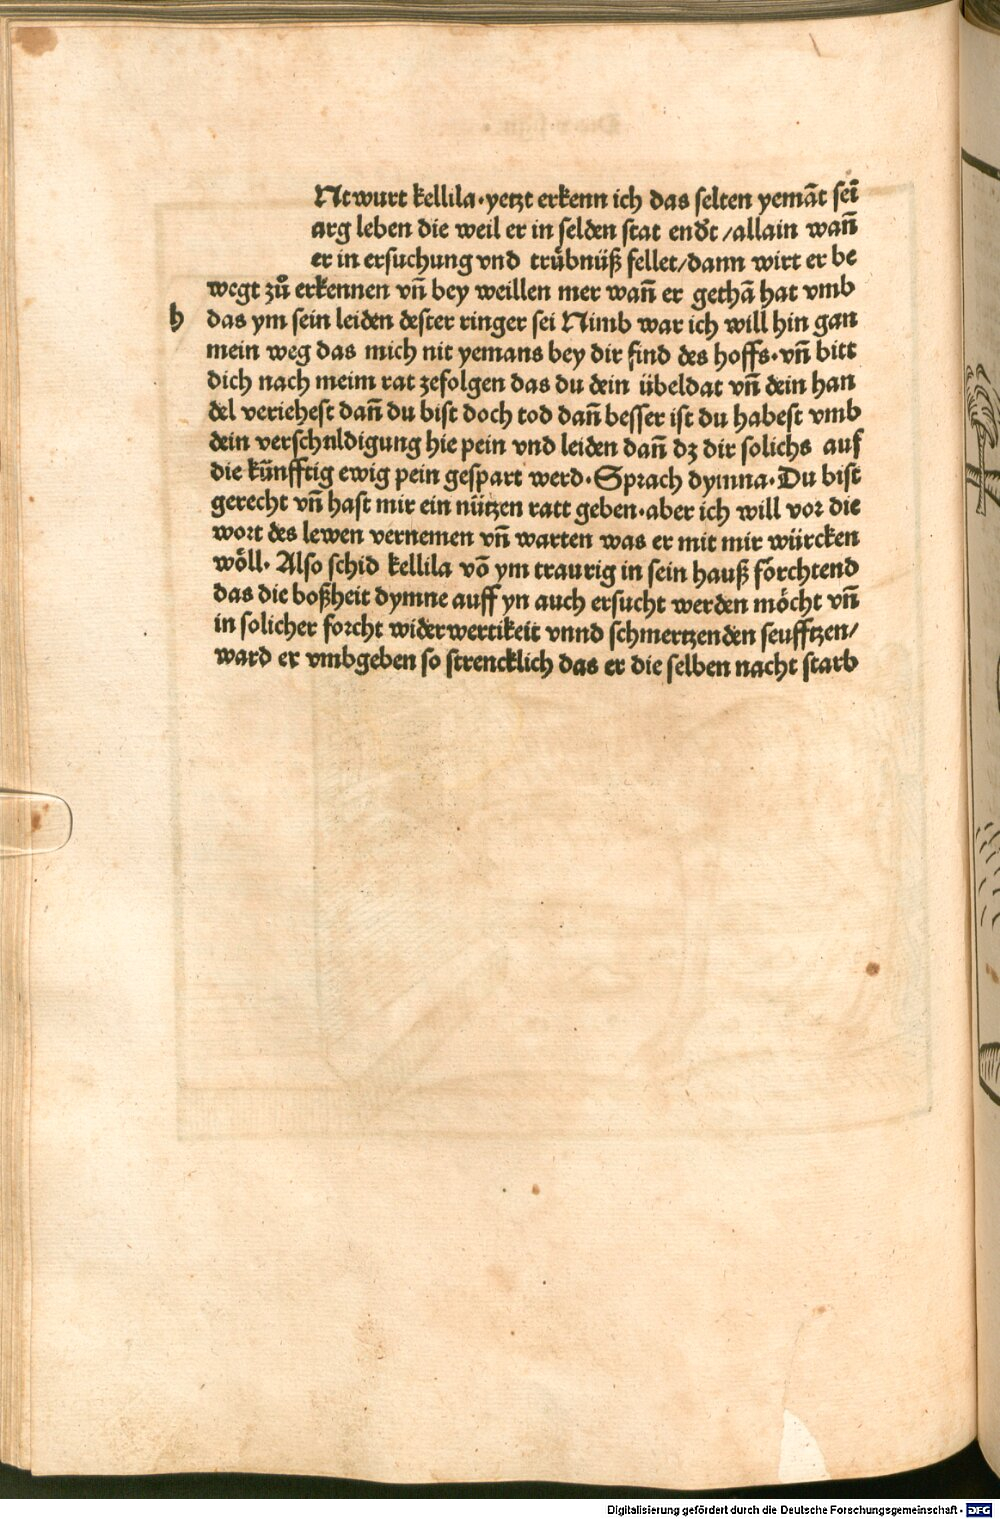 Ntwurt kellila·yetzt erkenn ich das selten yemāt seī
arg leben die weil er in selden stat end't /allain wañ
er in ersuchung vnd trübnüß fellet/dann wirt er be
wegt zů erkennen vñ bey weillen mer wañ er gethā hat vmb
h das ym sein leiden dester ringer sei Nimb war ich will hin gan
mein weg das mich nit yemans bey dir find des hoffs·vñ bitt
dich nach meim rat zefolgen das du dein übeldat vñ dein han
del veriehest dañ du bist doch tod dañ besser ist du habest vmb
dein verschnldigung hie pein vnd leiden dañ dz dir solichs auf
die künfftig ewig pein gespart werd·Sprach dymna·Du bist
gerecht vñ hast mir ein nützen ratt geben·aber ich will vor die
wort des lewen vernemen vñ warten was er mit mir würcken
wöll· Also schid kellila vō ym traurig in sein hauß förchtend
das die boßheit dymne auff yn auch ersucht werden möcht vñ
in solicher forcht widerwertikeit vnnd schmertzenden seufftzen/
ward er vmbgeben so strencklich das er die selben nacht starb
Digitalisierung gefördert durch die Deutsche Forschungsgemeinschaft - DFG